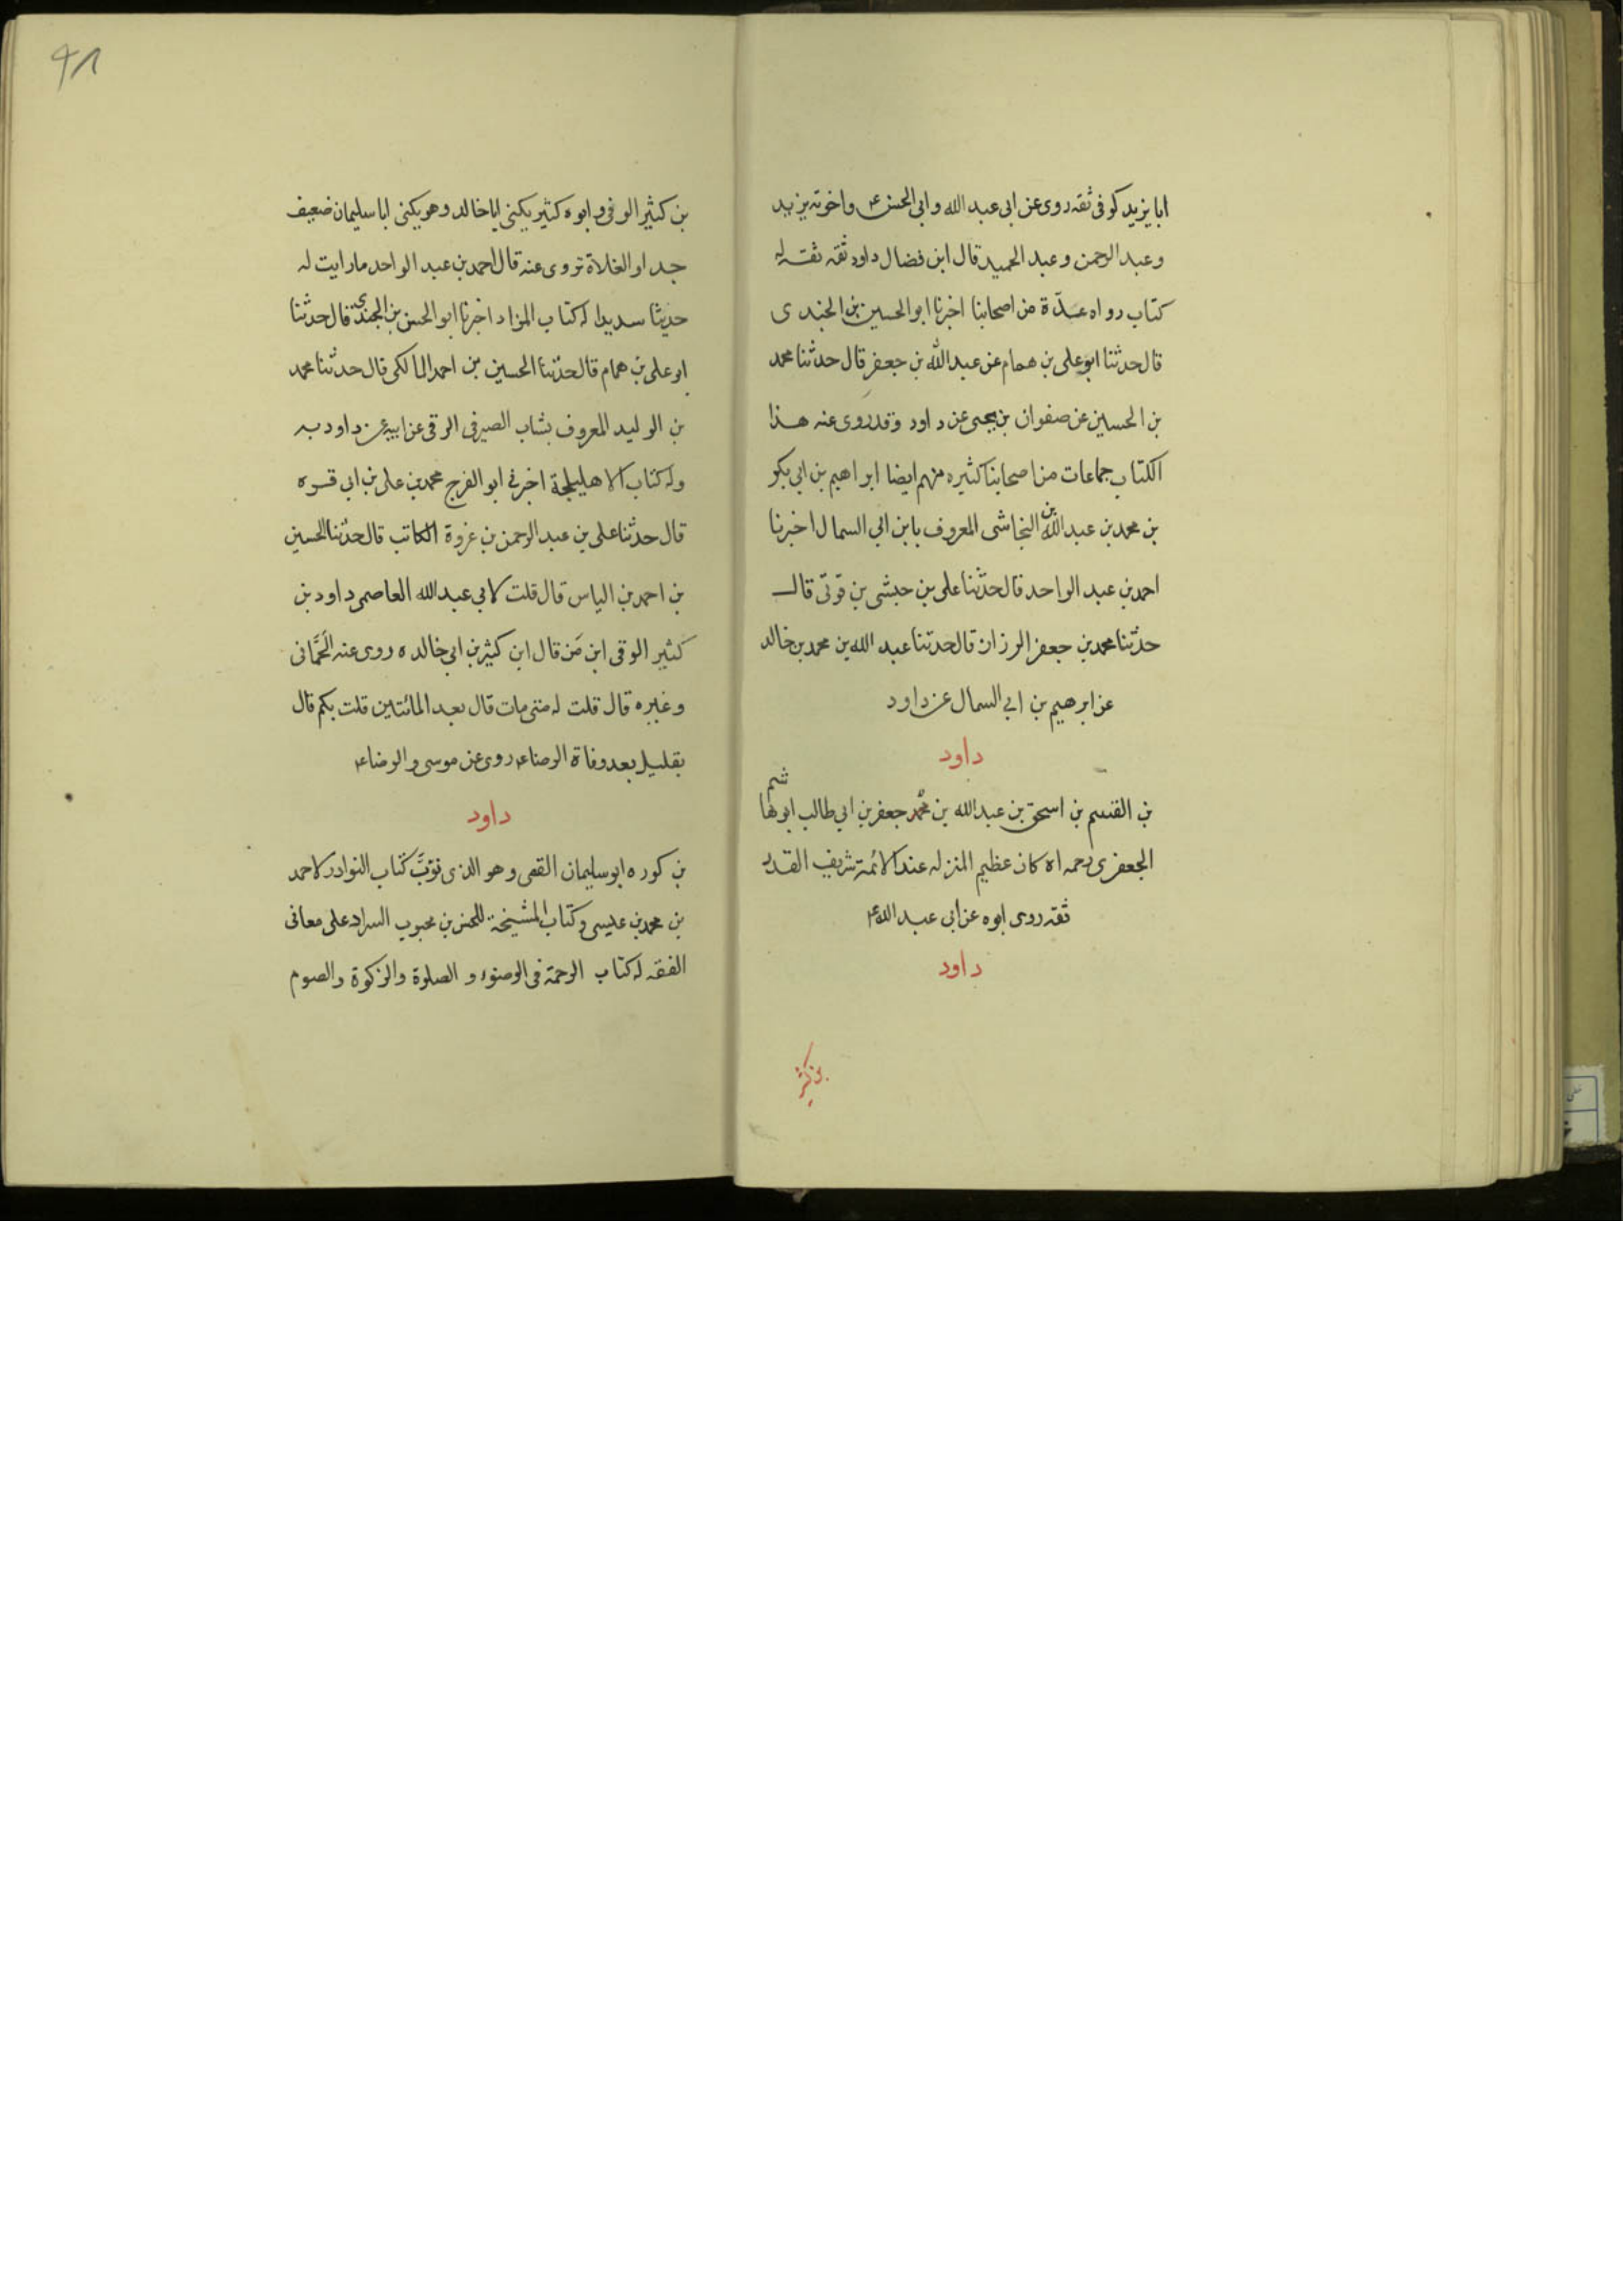 ابا يزيد كوفى ثقه روى عن ابى عبد الله وابى الحسن ع واخوته يزيد
وعبد الرحمن وعبد الحميد قال ابن فضال داود ثقه ثقه له
كتاب رواه عدّة من اصحابنا اخبرنا ابو الحسين بن الجندى
قال حدثنا ابو على بن همام عن عبد الله بن جعفر قال حدثنا محمد
بن الحسين عن صفوان بن يحيى عن داود وقد روى عنه هذا
الكتاب جماعات من اصحابنا كثيره منهم ايضا ابراهيم بن ابى بكر
بن محمد بن عبد الله بن النجاشى المعروف بابن ابى السمال اخبرنا
احمد بن عبد الواحد قال حدثنا على بن حبشى بن قوتى قال
حدثنا محمد بن جعفر الرزاز قال حدثنا عبد الله بن محمد بن خالد
عن ابرهيم بن ابى السمال عن داود
داود
بن القسم بن اسحق بن عبد الله بن محمد جعفر بن ابى طالب ابو هاشم
الجعفرى رحمه اه كان عظيم المنزله عند الائمة شريف القدر
ثقه روى ابوه عن ابى عبد الله ع
داود
بن كثير
٩٨
بن كثير الرقى وابوه كثير يكنى ابا خالد وهو يكنى ابا سليمان ضعيف
جدا والغلاة تروى عنه قال احمد بن عبد الواحد ما رايت له
حديثا سديدا له كتاب المزار اخبرنا ابو الحسن بن الجندى قال حدثنا
ابو على بن همام قال حدثنا الحسين بن احمد المالكى قال حدثنا محمد
بن الوليد المعروف بشاب الصيرفى الرقى عن ابيه عن داود به
وله كتاب الاهليلجة اخبرنى ابو الفرج محمد بن على بن ابى قره
قال حدثنا على بن عبد الرحمن بن عروة الكاتب قال حدثنا الحسين
بن احمد بن الياس قال قلت لابى عبد الله العاصمى داود بن
كثير الرقى ابن مَن قال ابن كثير بن ابى خالده روى عنه الحمّانى
وغيره قال قلت له متى مات قال بعد المائتين قلت بكم قال
بقليل بعد وفاة الرضا ع روى عن موسى والرضا ع
داود
بن كوره ابو سليمان القمى وهو الذى بوّب كتاب النوادر لاحمد
بن محمد بن عليسى وكتاب المشيخة للحسن بن محبوب السراد على معانى
الفقه له كتاب الرحمة فى الوضوء و الصلوة والزكوة والصوم